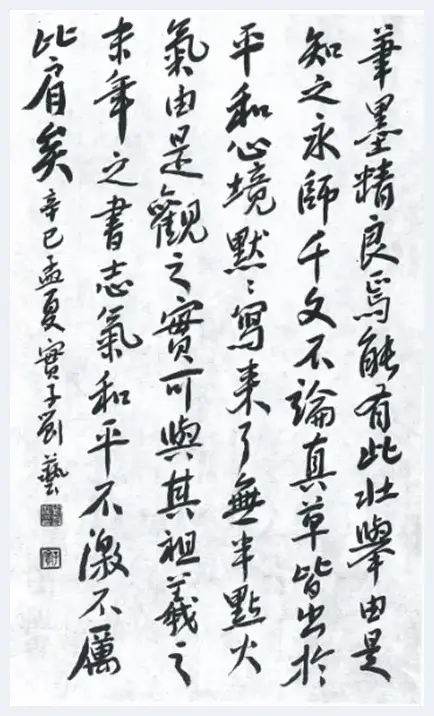 筆墨精良焉能有此壯舉由是
知之永師千文不論真草皆出於
平和心境默〻寫来了無半點火
氣由是觀之實可與其祖羲之
末年之書志氣和平不激不厲
比肩矣 辛巳孟夏實子劉藝